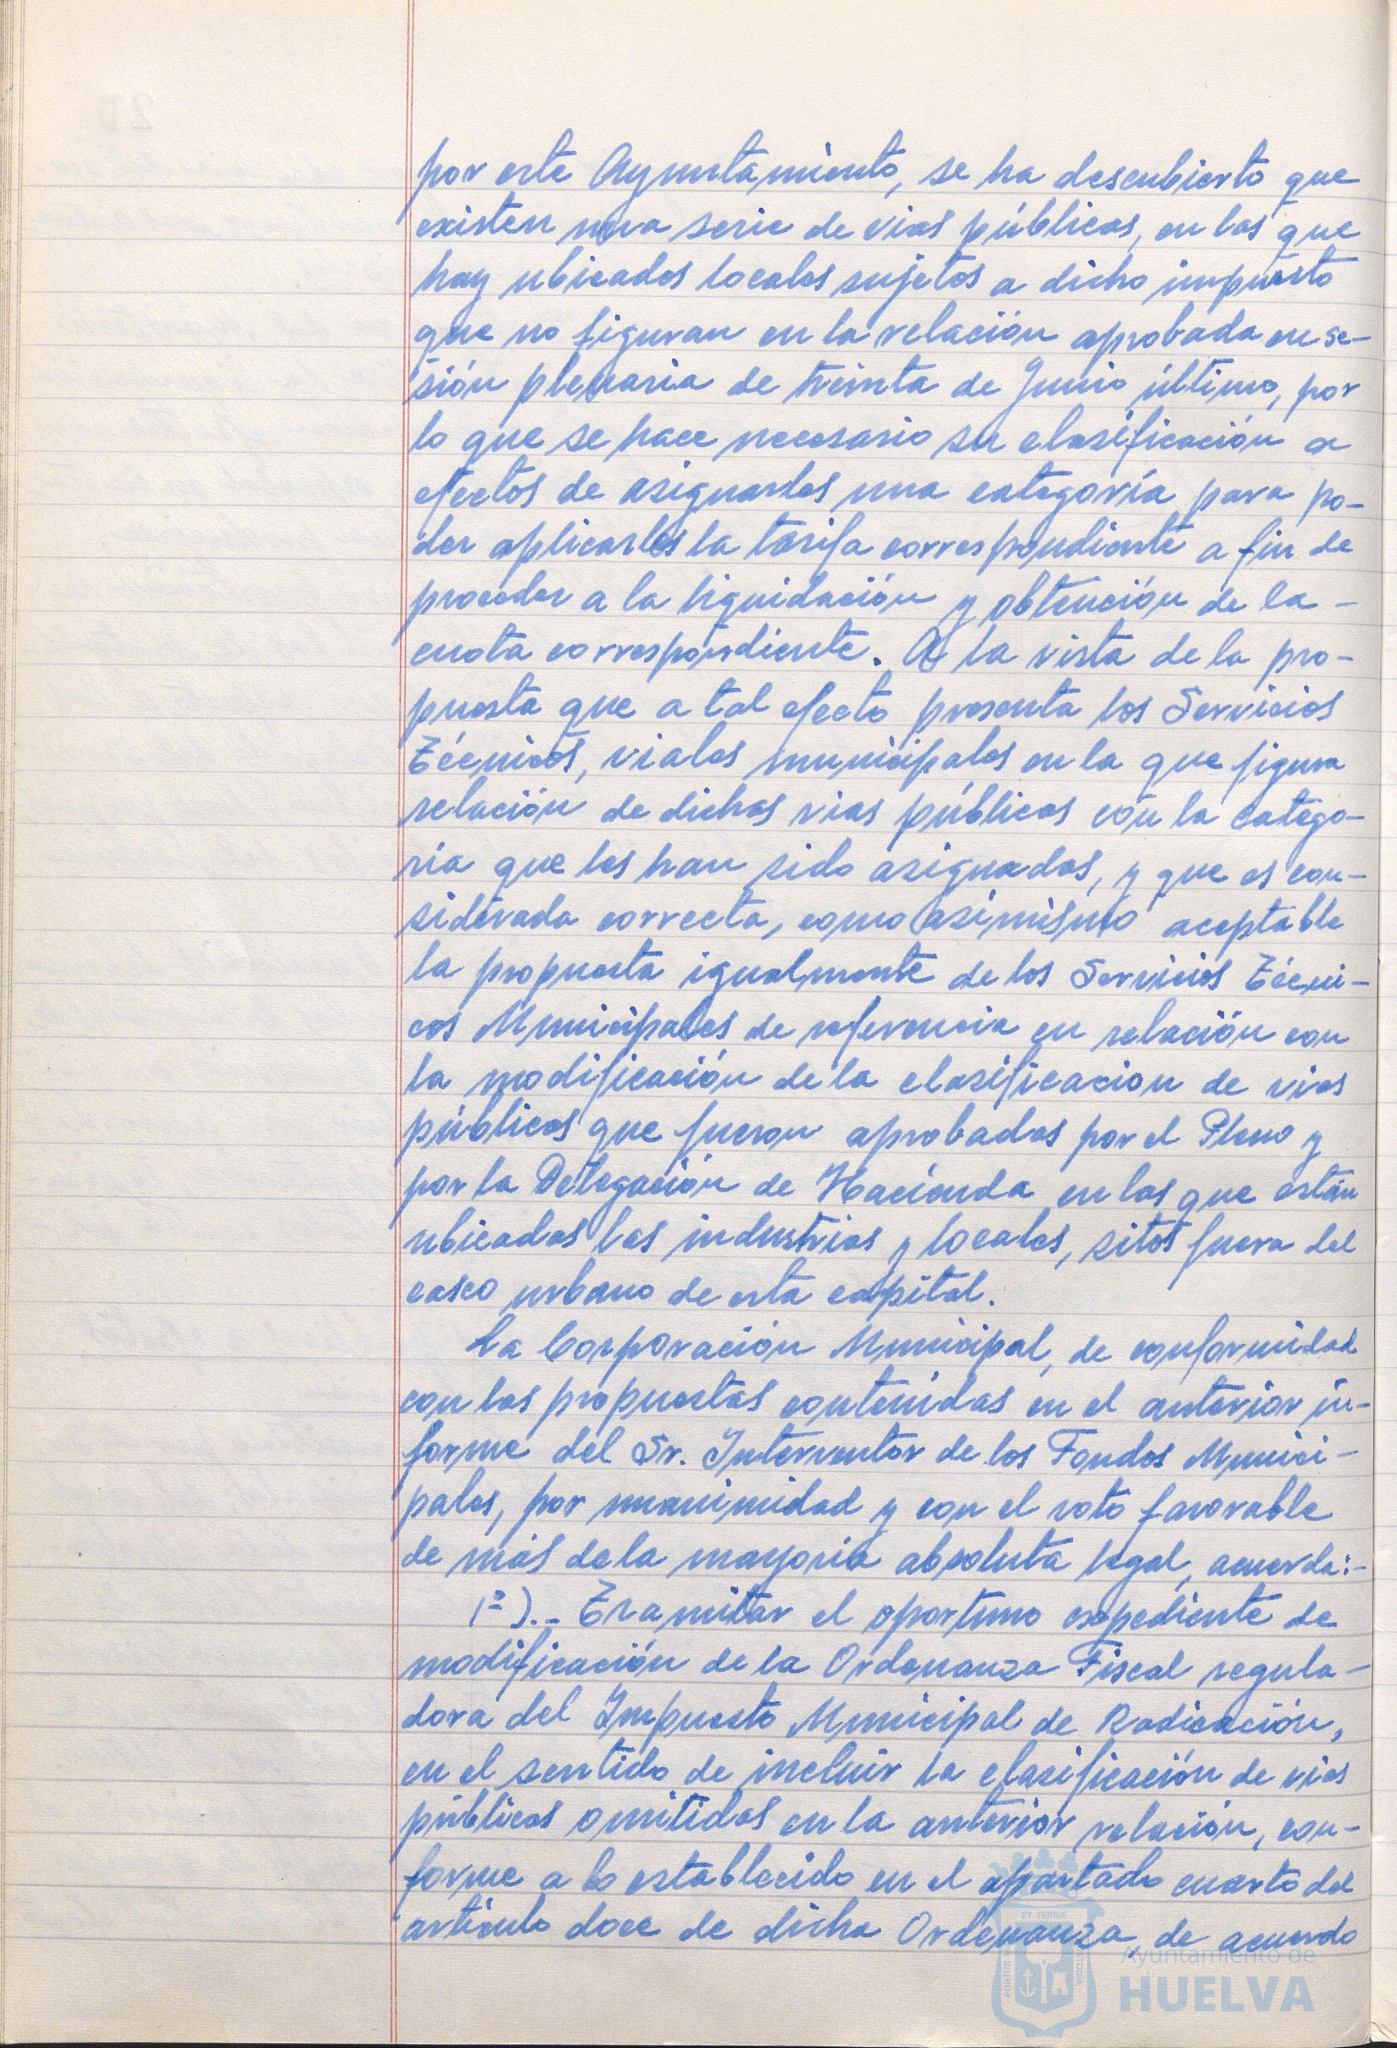 por este Ayuntamiento, se ha descubierto que
existen una serie de vias públicas, en las que
hay ubicados locales sujetos a dicho impuesto
que no figuran en la relación aprobada en se-
sión plenaria de treinta de Junio último, por
lo que se hace necesario su clasificación a
efectos de asignarles una categoría para po-
der aplicarles la tarifa correspondiente a fin de
proceder a la liquidación y obtención de la -
cuota correspondiente. A la vista de la pro-
puesta que a tal efecto presenta los Servicios
Técnicos, viales municipales en la que figura
relación de dichas vias públicas con la catego-
ría que les han sido asignadas, y que es con-
siderada correcta, como asimismo aceptable
la propuesta igualmente de los Servicios Técni-
cos Municipales de referencia en relación con
la modificación de la clasificacion de vias
públicas que fueron aprobadas por el Pleno y
por la Delegación de Hacienda en las que están
ubicadas las industrias y locales, sitos fuera del
casco urbano de esta capital.
La Corporación Municipal, de conformidad
con las propuestas contenidas en el anterior in-
forme del Sr. Interventor de los Fondos Munici-
pales, por unanimidad y con el voto favorable
de más de la mayoria absoluta legal, acuerda:-
1º).- Tramitar el oportuno expediente de
modificación de la Ordenanza Fiscal regula-
dora del Impuesto Municipal de Radicación,
en el sentido de incluir la clasificación de vias
públicas omitidas en la anterior relación, con-
forme a lo establecido en el apartado cuarto del
artículo doce de dicha Ordenanza, de acuerdo
ET TERRÆ
PORTUS
CUSTODIA
Ayuntamiento de
HUELVA